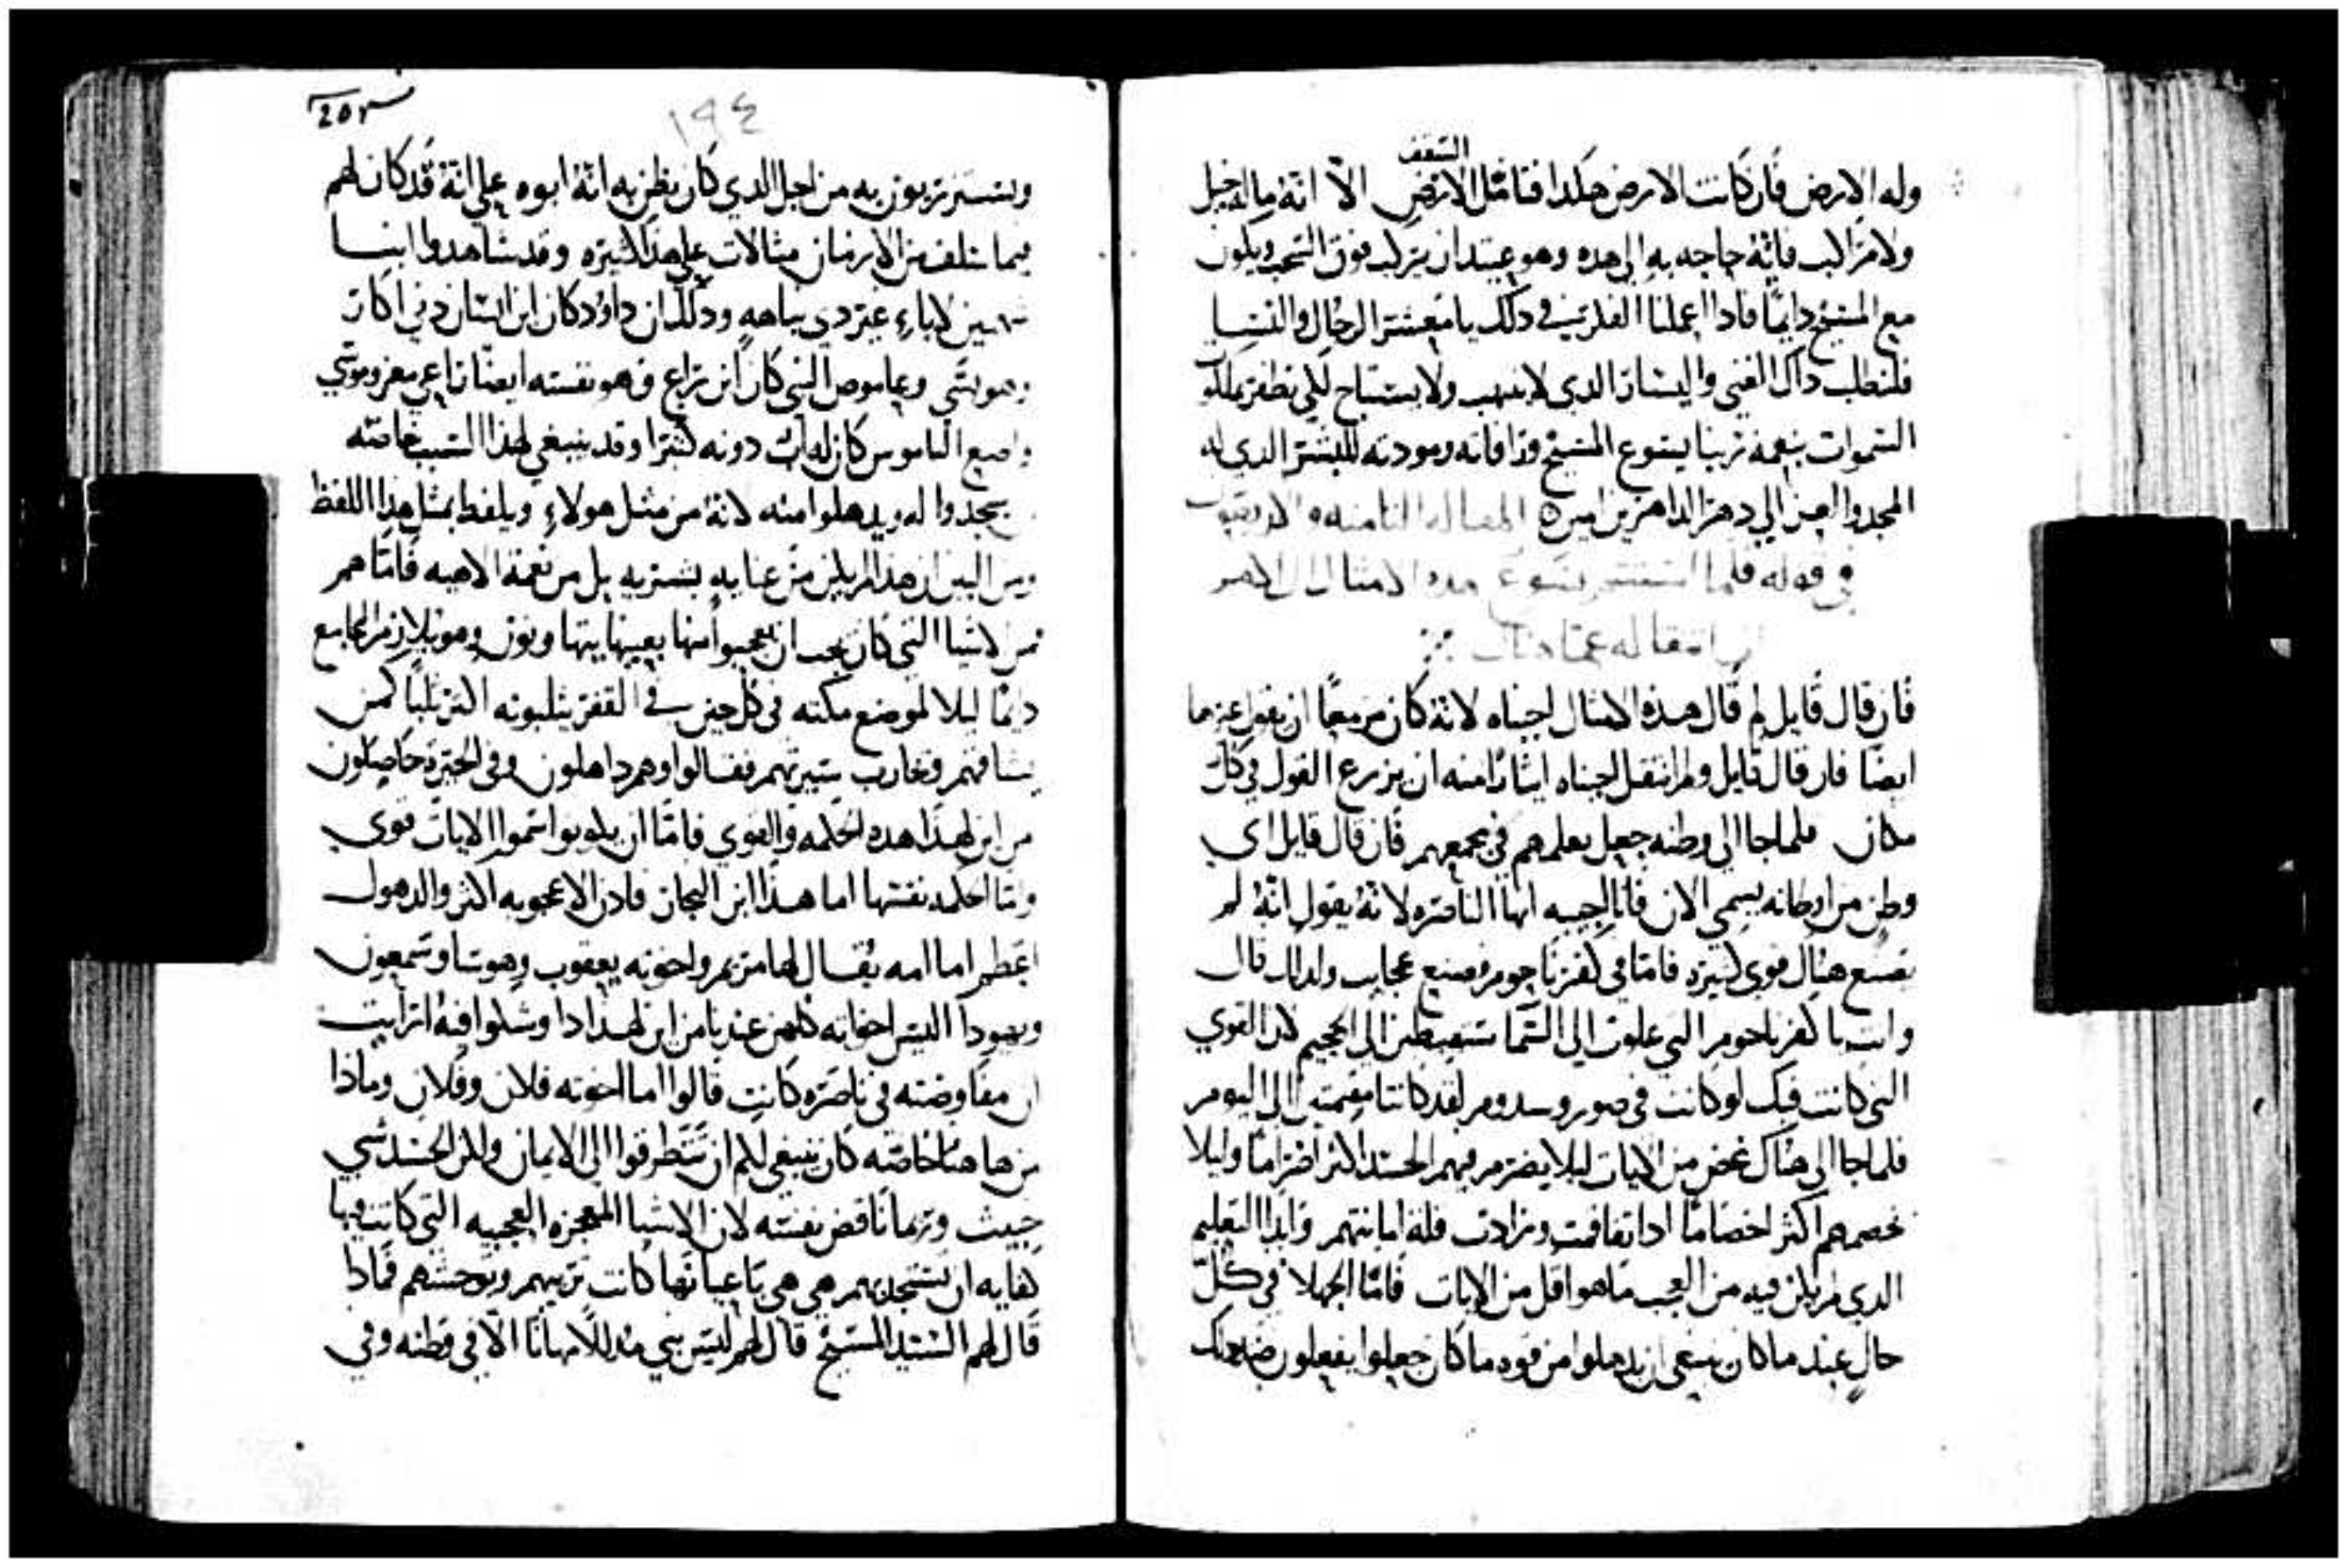 السقف
وله الارض فان كانت الارض هكدا فتامل الارض الا انه ماله خيل
ولا مراكب فانه حاجه به الى هده وهو عتيد ان يركب فوق السحب ويكون
مع المسيح دايمًا فادا اعملنا الفكر نحن في دلك يا معشر الرجال والنسا
فلنطلب داك الغنى واليسار الدي لا ينهب ولا يستباح لكي نظفر بملكوت
السموات بنعمة ربنا يسوع المسيح ورافاته ومودته للبشر الدي له
المجد والعز الي دهر الداهرين امين المقاله الثامنه والاربعون
في قوله فلما استتم يسوع هده الامثال الى اخر
انتقاله عما هناك
فان قال قايل لم قال هده الامثال اجبناه لانه كان مزمعًا ان يقول غيرها
ايضًا فان قال قايل ولم انتقل اجبناه ايثارًا منه ان يزرع القول في كل
مكان فلما جا الى وطنه جعل يعلمهم في مجمعهم فان قال قايل اي
وطن من اوطانه يسمى الان فانا اجيبه انها الناصره لانه يقول انه لم
يصنع هناك قوى كثيره فاما في كفرناحوم فصنع عجايب ولدلك قال
وانت يا كفرناحوم التي علوت الى السما ستهبطين الى الجحيم لان القوي
التي كانت فيك لو كانت في صور وسدوم لقد كانتا مقيمتين الى اليوم
فلما جا الى هناك غض من الايات ليلا يضرم فيهم الحسد اكثر اضرامًا وليلا
يخصمهم اكثر اخصامًا ادا تفاقمت وزادت قلة امانتهم وابدا التعليم
الدي لم يكن فيه من العجب ما هو اقل من الايات فاما الجهلا في كل
حال عند ما كان ينبغي ان يدهلوا من قوه ما كان جعلوا يفعلون ضد دلك
203
١٩٤
ويستزرون به من اجل الدي كان يظن به انه ابوه على انه قد كان لهم
فيما سلف من الازمان مثالات على هدا كثيره وقد شاهدوا ابنا
لاباءٍ غير دي نباهه ودلك ان داود كان ابن انسان دني اكار
وهو يسى وعاموص النبي كان ابن راع وهو نفسه ايضًا راعي معز وموسى
واضع الناموس كان له اب دونه كثيرا وقد ينبغي لهدا السبب خاصه
يسجدوا له ويدهلوا منه لانه من مثل هولاءِ ويلفظ بمثل هدا اللفظ
ومن البين ان هدا لم يكن من عنايه بشريه بل من نعمة الاهيه فاما هم
فمن الاشيا التي كان يجب ان يعجبوا منها بعينها يتهاونون وهو يلازم المجامع
دايمًا ليلا لموضع مكثه في كل حين في القفر يثلبونه اكثر ثلبًا كمن
يشاقهم ويحارب سيرتهم فقالوا وهم داهلون وفي الحيره حاصلون
من اين لهدا هده الحكمه والقوي فاما ان يكونوا سموا الايات قوى
واما الحكمه نفسها اما هدا ابن النجار فادن الاعجوبه اكثر والدهول
اعظم اما امه يقال لها مريم واخوته يعقوب ويوسا وسمعون
ويهودا اليس اخواته كلهن عندنا من اين لهدا دا وشكوا فيه ارايت
ان مفاوضته في ناصره كانت قالوا اما اخوته فلان وفلان وماذا
من هاهنا خاصه كان ينبغي لكم ان تتطرقوا الى الايمان ولكن الحسد شي
خبيث وربما ناقض نفسه لان الاشيا المعجزه العجيبه التي كانت فيها
كفايه ان تستجدبهم هي هي باعيانها كانت تريبهم وتوحشهم فمادا
قال لهم السيد المسيح قال لهم ليس نبي مدللا مهانا الا في وطنه وفي